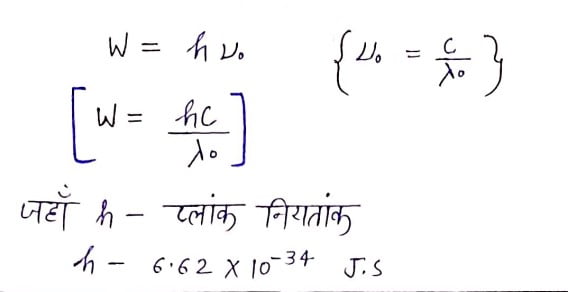 W = hν₀ {ν₀ = c/λ₀}
[W = hc/λ₀]
जहाँ h - प्लांक नियतांक
h - 6.62 X 10⁻³⁴ J.S